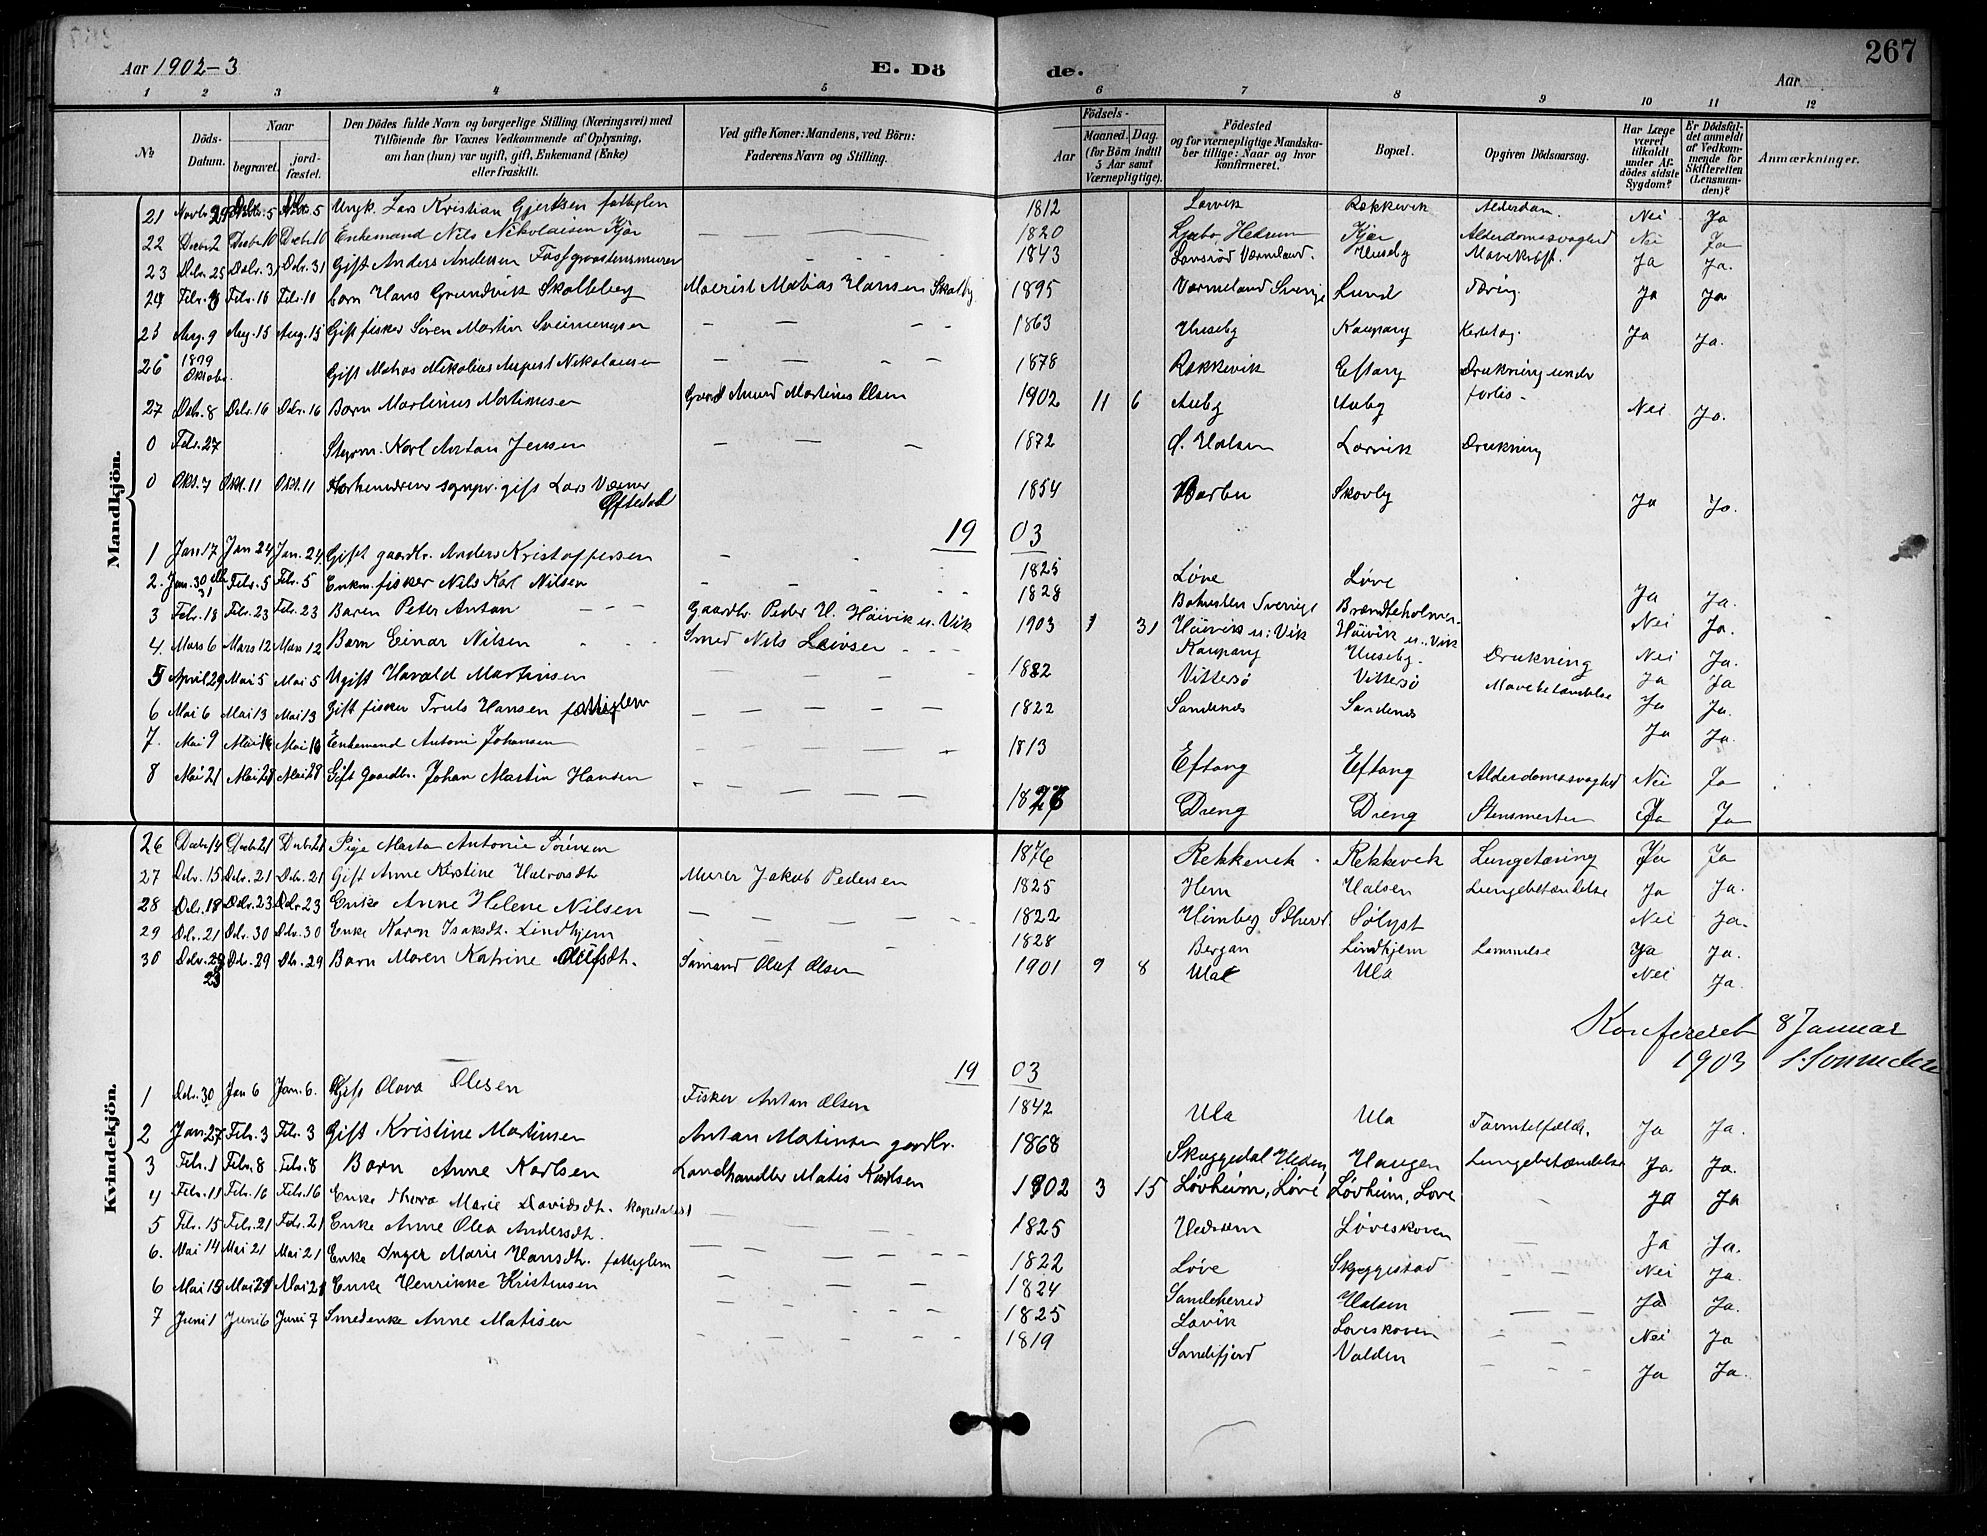 267
Aar 1902-3
E. Dö de.
Aar
1 2 3 4 5 6 7 8 9 10 11 12
No
Döds-Datum.
Naar
begravet.
jord-fæstet.
Den Dödes fulde Navn og borgerlige Stilling (Næringsvei) med
Tilföiende for Voxnes Vedkommende af Oplysning,
om han (hun) var ugift, gift, Enkemand (Enke)
eller fraskilt.
Ved gifte Koner: Mandens, ved Börn:
Faderens Navn og Stilling.
Födsels-
Aar
Maaned. Dag.
(for Börn indtil
5 Aar samt
Værnepligtige).
Födested
og for værnepligtige Mandska-
ber tillige: Naar og hvor
konfirmeret.
Bopæl.
Opgiven Dödsaarsag.
Har Læge
været
tilkaldt
under Af-
dödes sidste
Sygdom?
Er Dödsfal-
det anmeldt
af Vedkom-
mende for
Skifteretten
(Lensman-
den)?
Anmærkninger.
Mandkjön.
21 Novbr 29 Debr. 5 Debr 5 Ungk. Lars Kristian Gjertsen fattiglem 1812 Larvik Rekkevik Alderdom. Nei Ja
22 Decbr 2 Decbr 10 Decbr 10 Enkemand Nils Nikolaisen Kjær — — — 1820 Hedrum Kjær Alderdomssvaghed Nei Ja
23 Debr. 25 Debr. 31 Debr. 31 Gift Anders Andersen 1843 Værmland. Huseby Mavekræft. Ja Ja.
24 Febr. Febr. 10 Febr. 10 barn Hans Grundvik Skalleberg Matias Hansen 1895 Værmeland Sverige Lund Tæring Ja Ja
25 Aug. 9 Aug. 15 Aug. 15 Gift fisker Sören Martin — — — 1863 Huseby Kaupang Ja Ja.
26 1899 Oktober. Gift Nikolaisen — — — 1878 Rekkevik Eftang Drukning under forlis
27 Debr. 8 Debr. 16 Debr. 16 Barn Martinius Martinusen Martinus Olsen 1902 11 6 Auby Auby Nei Ja.
0 Febr. 27 Styrm. Karl Anton Jensen — — — 1872 Ø. Halsen Larvik Drukning
0 Okt. 7 Okt. 11 Okt. 11 gift Lars Værner Eftedal 1854 Barbu Skovby Ja Ja.
1903
1 Jan 17 Jan 24 Jan. 24 Gift gaardbr. Anders Kristoffersen — — — 1825 Løve Løve Ja Ja.
2. Jan. 30 ell. 31 Febr. 5 Febr. 5 Enkm. fisker Nils Karl Nilsen — — — 1828 Bohuslen Sverige Brændteholmen Nei Ja.
3 Febr. 18 Febr. 23 Febr. 23 Barn Peter Anton — — — Gaardbr. Peder H. Häivik u. Vik 1903 1 31 Häivik u: Vik Häivik u. Vik Nei Ja.
4. Mars 6 Mars 12 Mars 12 Barn Einar Nilsen Smed Nils Kaupang Huseby. Drukning Ja Ja
5 April 29 Mai 5 Mai 5 Ugift Harald Martinsen — — — 1882 Vittersø Vittersø Mavebetændelse Ja Ja.
6 Mai 6 Mai 13 Mai 13 Gift fisker Truls Hansen fattiglem — — — — 1822 Sandenæs Sandenæs Ja Ja.
7. Mai 9 Mai 16 Mai 16 Enkemand Antoni Johansen — — — 1813 Eftang Eftang Alderdomssvaghed Nei Ja
8 Mai 21 Mai 28 Mai 28 Gift Gaardbr. Johan Martin Hansen — — — — 1826 Dreng Dreng Stensmerter Ja Ja
Kvindekjön.
26 Decbr 14 Decbr 21 Decbr 21 Pige Marta Antonie Sörensen 1876 Rekkevik Rekkevik Lungetæring Ja Ja
27 Debr. 15 Debr. 21 Debr. 21 Gift Anne Kirstine Halvorsdt. Murer Jakob Pedersen 1825 Hem Halsen Lungebetændelse Ja Ja.
28 Debr. 18 Debr. 23 Debr 23 Enke Anne Helene Nilsen — — — 1822 Himberg Sdherred Sølyst Nei Ja.
29 Debr. 21 Debr. 30 Debr. 30 Enke Karen Isaksdt. Lindhjem — — — 1828 Bergan Lindhjem Lammelse Ja Ja.
30 Debr. 23 Debr. 29 Dbr. 29 Barn Maren Katrine Olufsdt. Sømand Oluf Olsen 1901 9 8 Ula Ula Nei Ja.
Konfereret 8 Januar
1903
1903
1 Debr. 30 Jan 6 Jan. 6. Gift Olava Olesen Fisker Anton Olsen 1842 Ula Ula Ja Ja.
2 Jan. 27 Febr. 3 Febr. 3 Gift Kristine Martinsen Antan Matinsen gaardbr. 1868 Skuggedal Haugen Lungebetændelse Ja Ja.
3 Febr. 1 Febr. 8 Febr. 8 Barn Anne Karlsen Landhandler Matis Karlsen 1902 3 15 Løvheim, Løve Løvheim, Løve Ja Ja
4 Febr. 11 Febr. 16 Febr. 16 Enke Thora Marie Davidsdt. — — — 1825 Hedrum Løveskoven Ja Ja.
5 Febr. 15 Febr. 21 Febr. 21 Enke Anne Olea Andersdt. — — — 1822 Løve Skjeggestad Nei Ja.
6. Mai 14 Mai 21 Mai 21 Enke Inger Marie Hansdt. fattiglem — — — 1824 Sandeherred Halsen Ja Ja.
6 Mai 15 Mai 21 Mai 21 Enke Henrikke Kristensen — — — 1825 Lavik Løveskoven Nei Ja
7 Juni 1 Juni 6 Juni 7 Smedenke Anne Matisen — — — 1819 Sandefjord Valden Ja Ja.